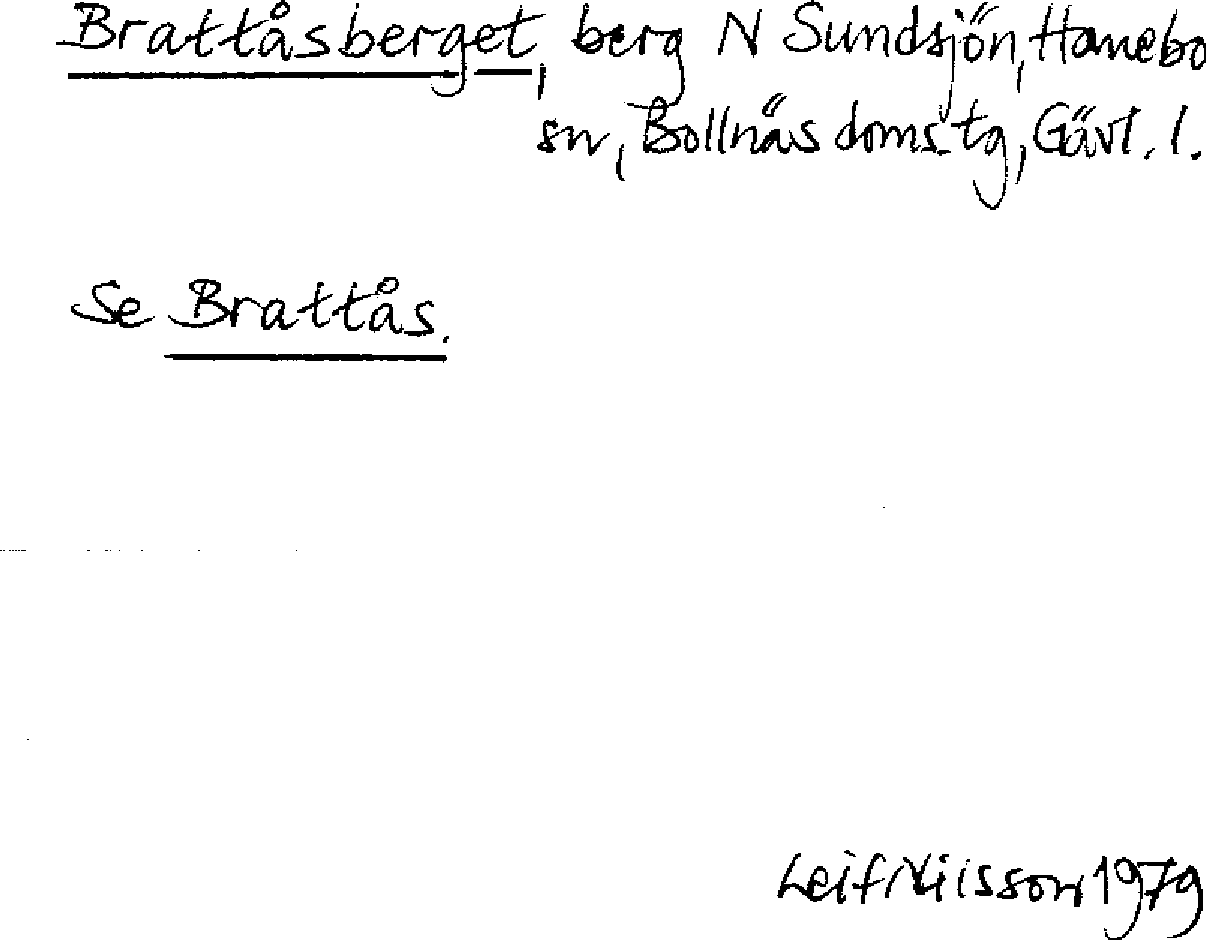 Brattåsberget, berg N Sundsjön, Hanebo
sn, Bollnäs doms.tg, Gävl. l.
Se Brattås.
Leif Nilsson 1979